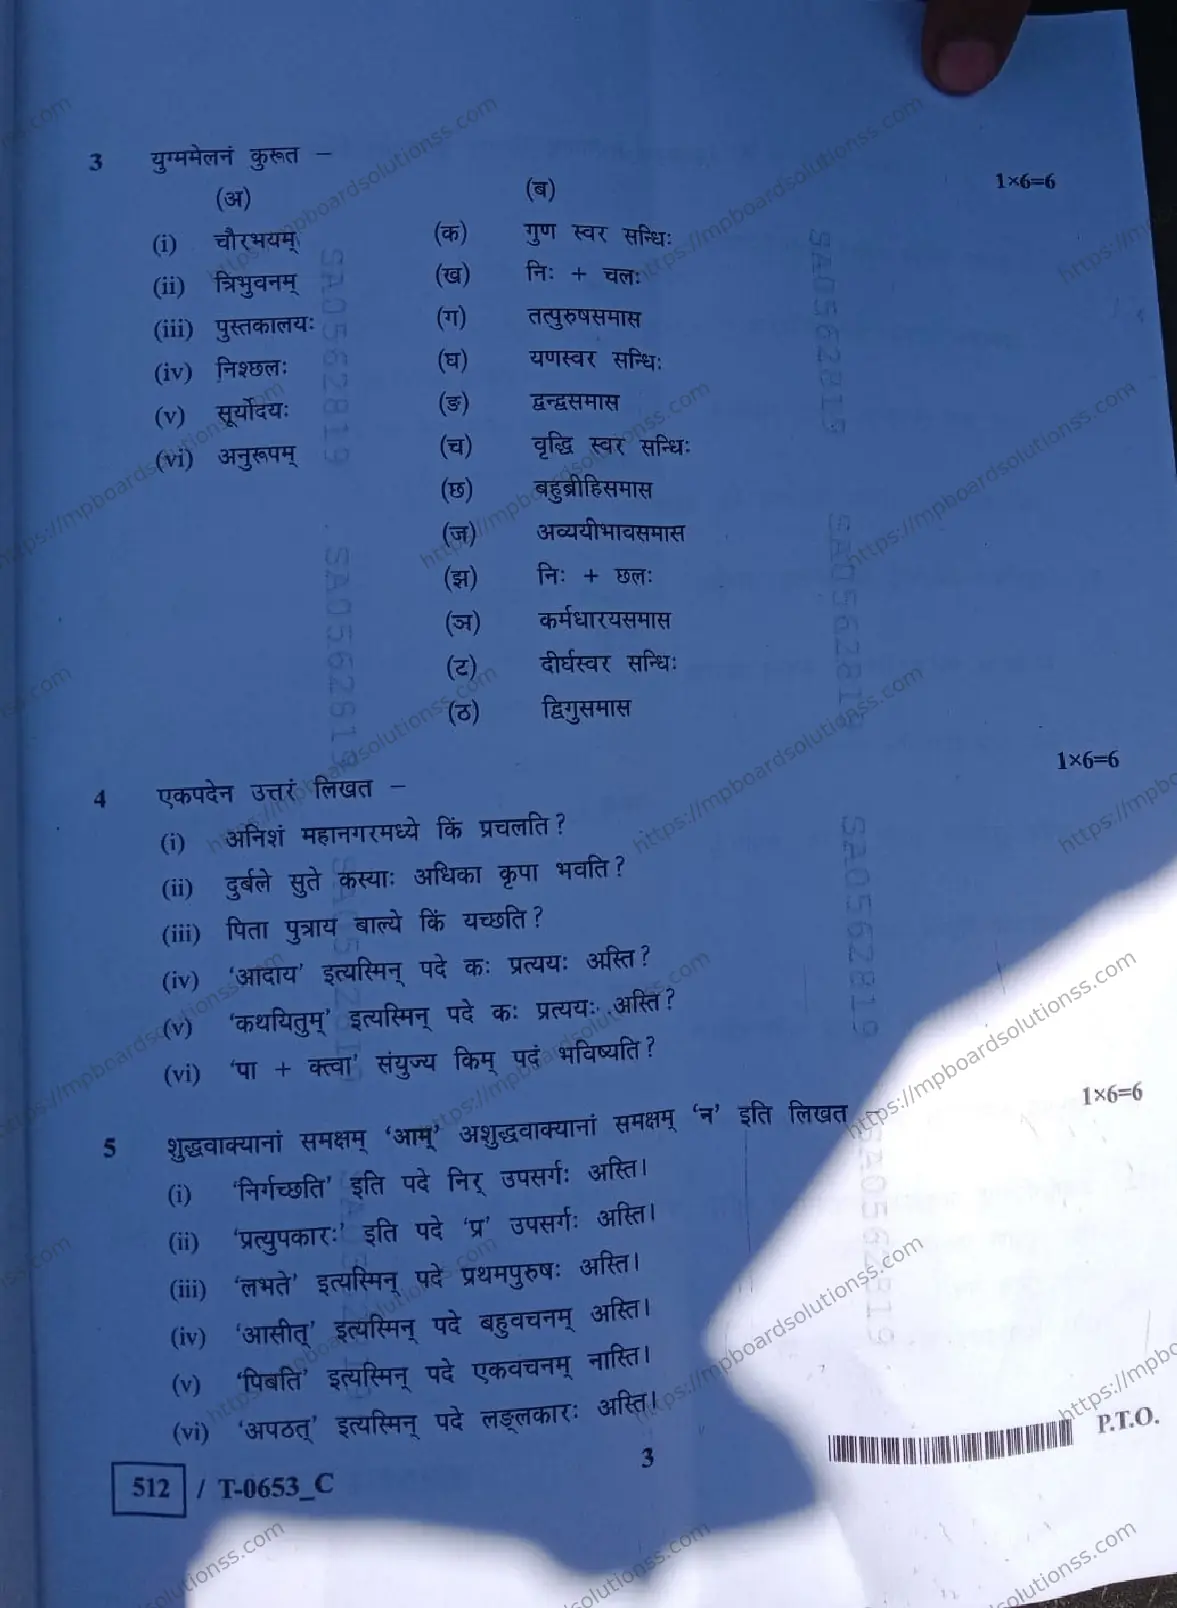 3 युग्ममेलनं कुरूत – 1×6=6
(अ) (ब)
(i) चौरभयम् (क) गुण स्वर सन्धिः
(ii) त्रिभुवनम् (ख) निः + चलः
(iii) पुस्तकालयः (ग) तत्पुरुषसमास
(iv) निश्छलः (घ) यणस्वर सन्धिः
(v) सूर्योदयः (ङ) द्वन्द्वसमास
(vi) अनुरूपम् (च) वृद्धि स्वर सन्धिः
(छ) बहुब्रीहिसमास
(ज) अव्ययीभावसमास
(झ) निः + छलः
(ञ) कर्मधारयसमास
(ट) दीर्घस्वर सन्धिः
(ठ) द्विगुसमास
4 एकपदेन उत्तरं लिखत – 1×6=6
(i) अनिशं महानगरमध्ये किं प्रचलति ?
(ii) दुर्बले सुते कस्याः अधिका कृपा भवति ?
(iii) पिता पुत्राय बाल्ये किं यच्छति ?
(iv) ‘आदाय’ इत्यस्मिन् पदे कः प्रत्ययः अस्ति ?
(v) ‘कथयितुम्’ इत्यस्मिन् पदे कः प्रत्ययः अस्ति ?
(vi) ‘पा + क्त्वा’ संयुज्य किम् पदं भविष्यति ?
5 शुद्धवाक्यानां समक्षम् ‘आम्’ अशुद्धवाक्यानां समक्षम् ‘न’ इति लिखत – 1×6=6
(i) ‘निर्गच्छति’ इति पदे निर् उपसर्गः अस्ति।
(ii) ‘प्रत्युपकारः’ इति पदे ‘प्र’ उपसर्गः अस्ति।
(iii) ‘लभते’ इत्यस्मिन् पदे प्रथमपुरुषः अस्ति।
(iv) ‘आसीत्’ इत्यस्मिन् पदे बहुवचनम् अस्ति।
(v) ‘पिबति’ इत्यस्मिन् पदे एकवचनम् नास्ति।
(vi) ‘अपठत्’ इत्यस्मिन् पदे लङ्लकारः अस्ति।
512 / T-0653_C 3 P.T.O.
SA0562819
https://mpboardsolutionss.com